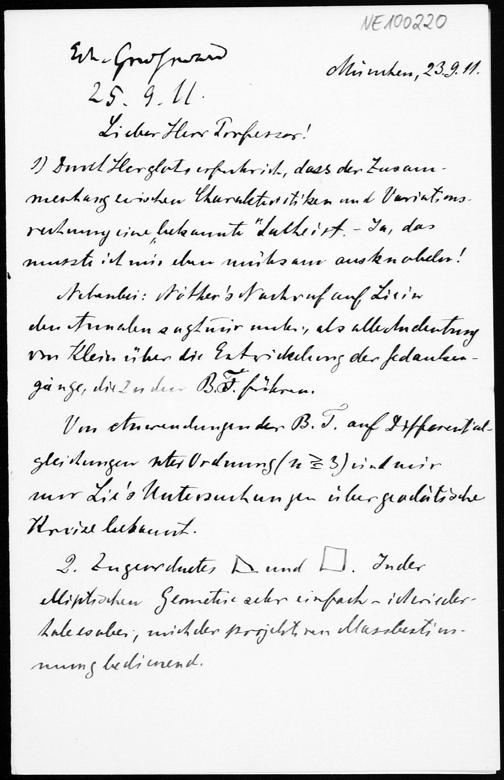 NE100220
München, 23.9.11.
25. 9. 11.
Lieber Herr Professor!
1) Durch Herglotz erfuhr ich, dass der Zusam-
menhang zwischen Charakteristiken und Variations-
rechnung eine „bekannte" Sache ist. – Ja, das
musste ich mir eben mühsam ausknobeln!
Nebenbei: Nöther's Nachruf auf Lie in
den Annalen sagt mir mehr, als alle Andeutung
von Klein über die Entwickelung der Gedanken-
gänge, die zu den B.T. führen.
Von Anwendungen der B. T. auf Differential-
gleichungen nter Ordnung (n ≧ 3) sind mir
nur Lie's Untersuchungen über geodätische
Kreise bekannt.
2. Zugeordnetes und . In der
elliptischen Geometrie sehr einfach – ich wieder-
hole es aber, mich der projektiven Massbestim-
mung bedienend.